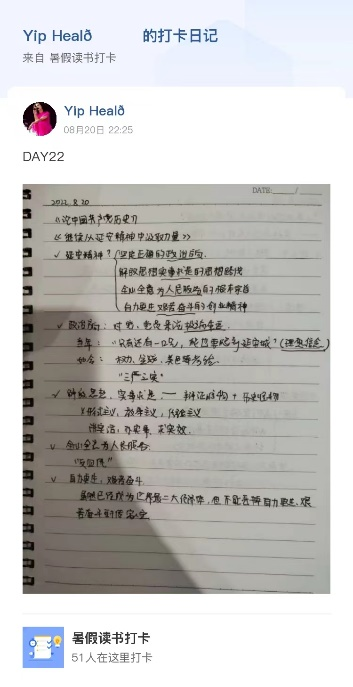 Yip Healð 的打卡日记
来自 暑假读书打卡
Yip Healð
08月20日 22:25
DAY22
DATE:
2022. 8. 20
《论中国共产党历史》
《继续从延安精神中汲取力量》
✓ 延安精神? 坚定正确的政治方向
解放思想实事求是的思想路线
全心全意为人民服务的根本宗旨
自力更生艰苦奋斗的创业精神
✓ 政治方向:
当年: "只有还有一口气, 爬也要爬到延安城"(理想信念)
如今: 权力、金钱、美色等考验
"三严三实"
✓ 解放思想, 实事求是 一 辩证唯物
形式主义、教条主义、
讲实话、办实事、求实效.
✓ 全心全意为人民服务.
✓ 自力更生, 艰苦奋斗
虽然已经成为世界第二大经济体, 但不能丢掉自力更生、艰
苦奋斗的
暑假读书打卡
51人在这里打卡